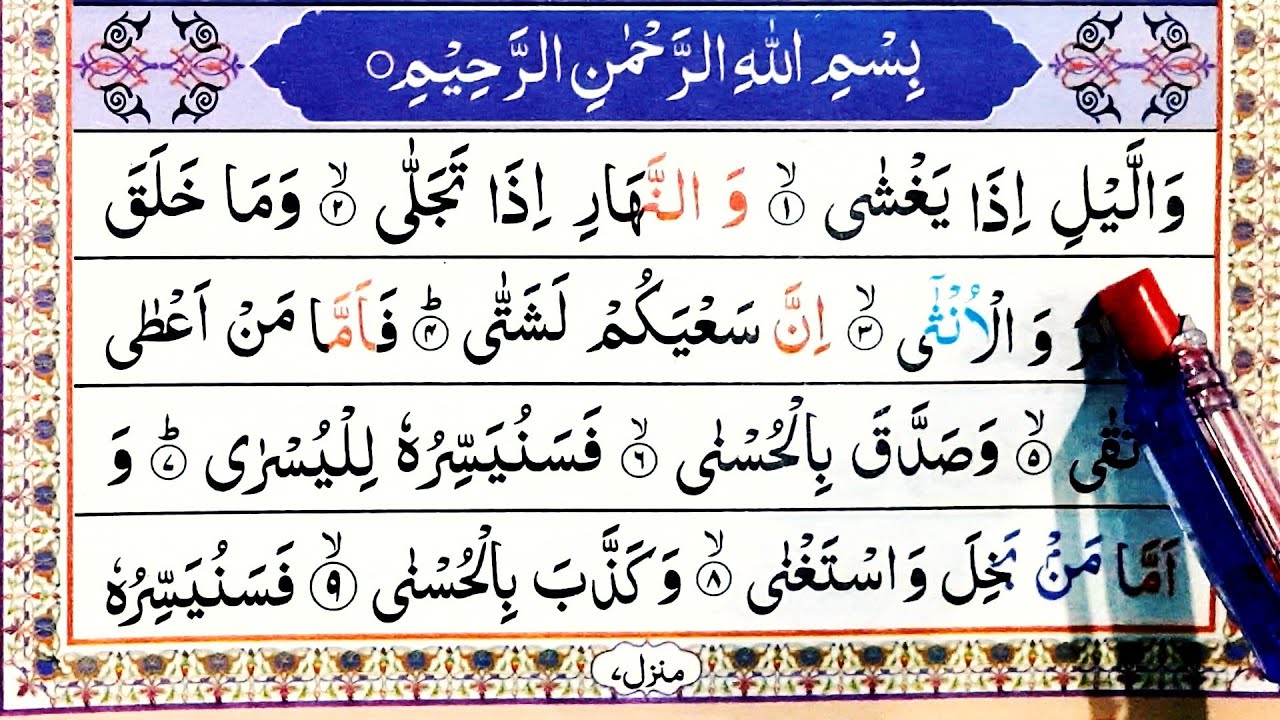 بِسْمِ اللهِ الرَّحْمٰنِ الرَّحِيْمِ ○
وَالَّيْلِ اِذَا يَغْشٰى ۙ﴿١﴾ وَ النَّهَارِ اِذَا تَجَلّٰى ۙ﴿٢﴾ وَمَا خَلَقَ
وَ الْاُنْثٰٓى ۙ﴿٣﴾ اِنَّ سَعْيَكُمْ لَشَتّٰى ؕ﴿٤﴾ فَاَمَّا مَنْ اَعْطٰى
ۙ﴿٥﴾ وَصَدَّقَ بِالْحُسْنٰى ۙ﴿٦﴾ فَسَنُيَسِّرُهٗ لِلْيُسْرٰى ؕ﴿٧﴾ وَ
اَمَّا مَنْۢ بَخِلَ وَ اسْتَغْنٰى ۙ﴿٨﴾ وَ كَذَّبَ بِالْحُسْنٰى ۙ﴿٩﴾ فَسَنُيَسِّرُهٗ
منزل ٧